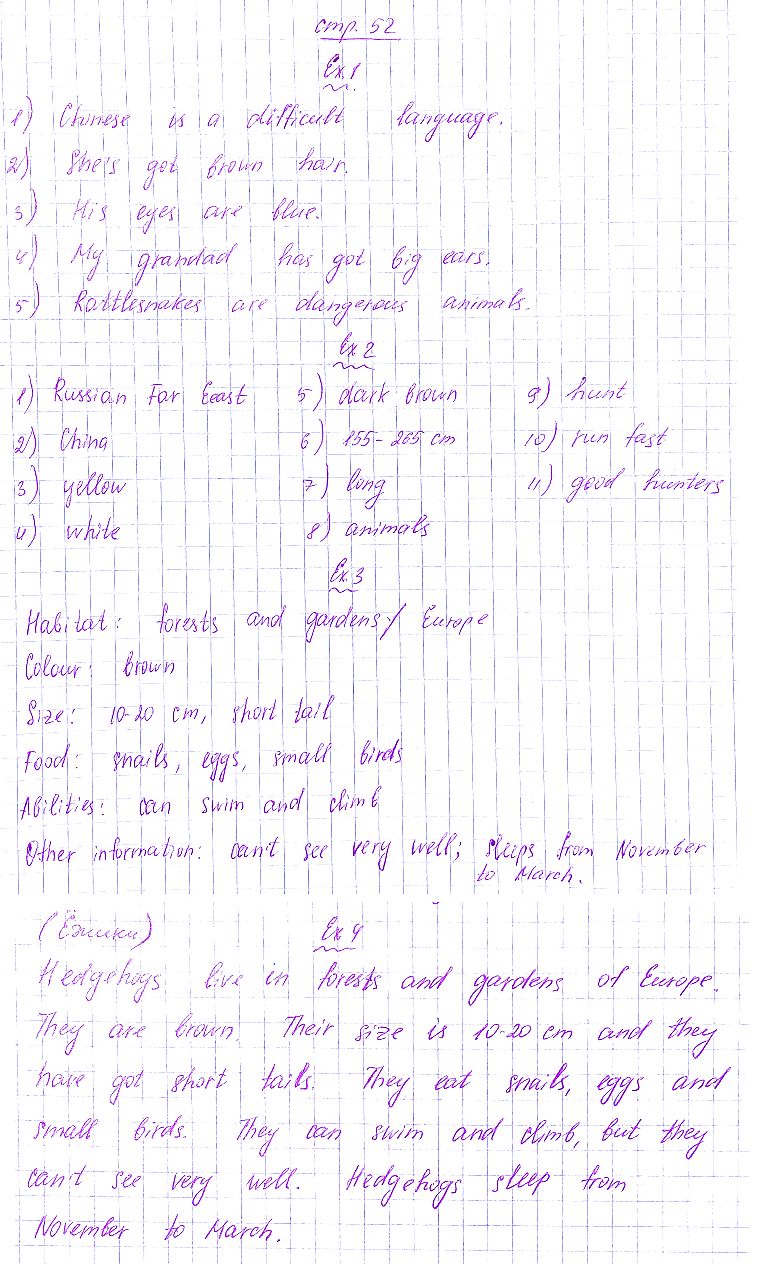 стр. 52
Ex. 1
1) Chinese is a difficult language.
2) She's got brown hair.
3) His eyes are blue.
4) My grandad has got big ears.
5) Rattlesnakes are dangerous animals.
Ex 2
1) Russian Far East 5) dark brown 9) hunt
2) China 6) 155-265 cm 10) run fast
3) yellow 7) long 11) good hunters
4) white 8) animals
Ex. 3
Habitat: forests and gardens / Europe
Colour: brown
Size: 10-20 cm, short tail
Food: snails, eggs, small birds
Abilities: can swim and climb
Other information: can't see very well; sleeps from November
to March.
(Ёжики) Ex 4
Hedgehogs live in forests and gardens of Europe.
They are brown. Their size is 10-20 cm and they
have got short tails. They eat snails, eggs and
small birds. They can swim and climb, but they
can't see very well. Hedgehogs sleep from
November to March.